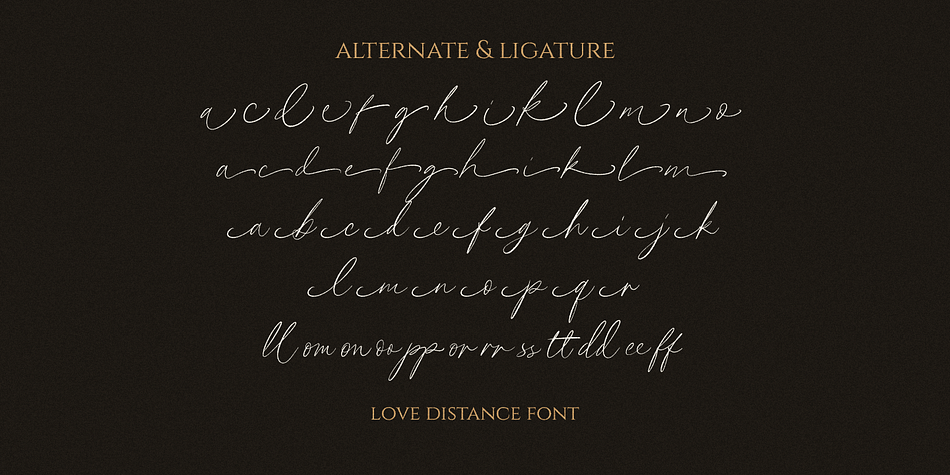 ALTERNATE & LIGATURE
a c d e f g h i k l m n o
a c d e f g h i k l m
a b c d e f g h i j k
l m n o p q r
ll om on oo pp or rr ss tt dd ee ff
LOVE DISTANCE FONT